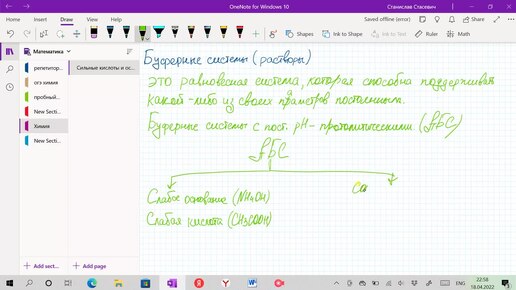 OneNote for Windows 10
Станислав Стасевич
Home
Insert
Draw
View
Help
Saved offline (error)
Shapes
Ink to Shape
Ink to Text
Math
Математика
репетитор...
огэ химия
пробный...
New Secti...
Химия
New Secti...
Сильные кислоты и ос...
Буферные системы (растворы)
это равновесная система, которая способна поддерживать
какой-либо из своих праметров постоянным.
Буферные системы с пост. pH - протолитическими (АБС)
АБС
Слабое основание (NH4OH)
Слабая кислота (CH3COOH)
Со
Add sect...
Add page
ENG
22:58
18.04.2022